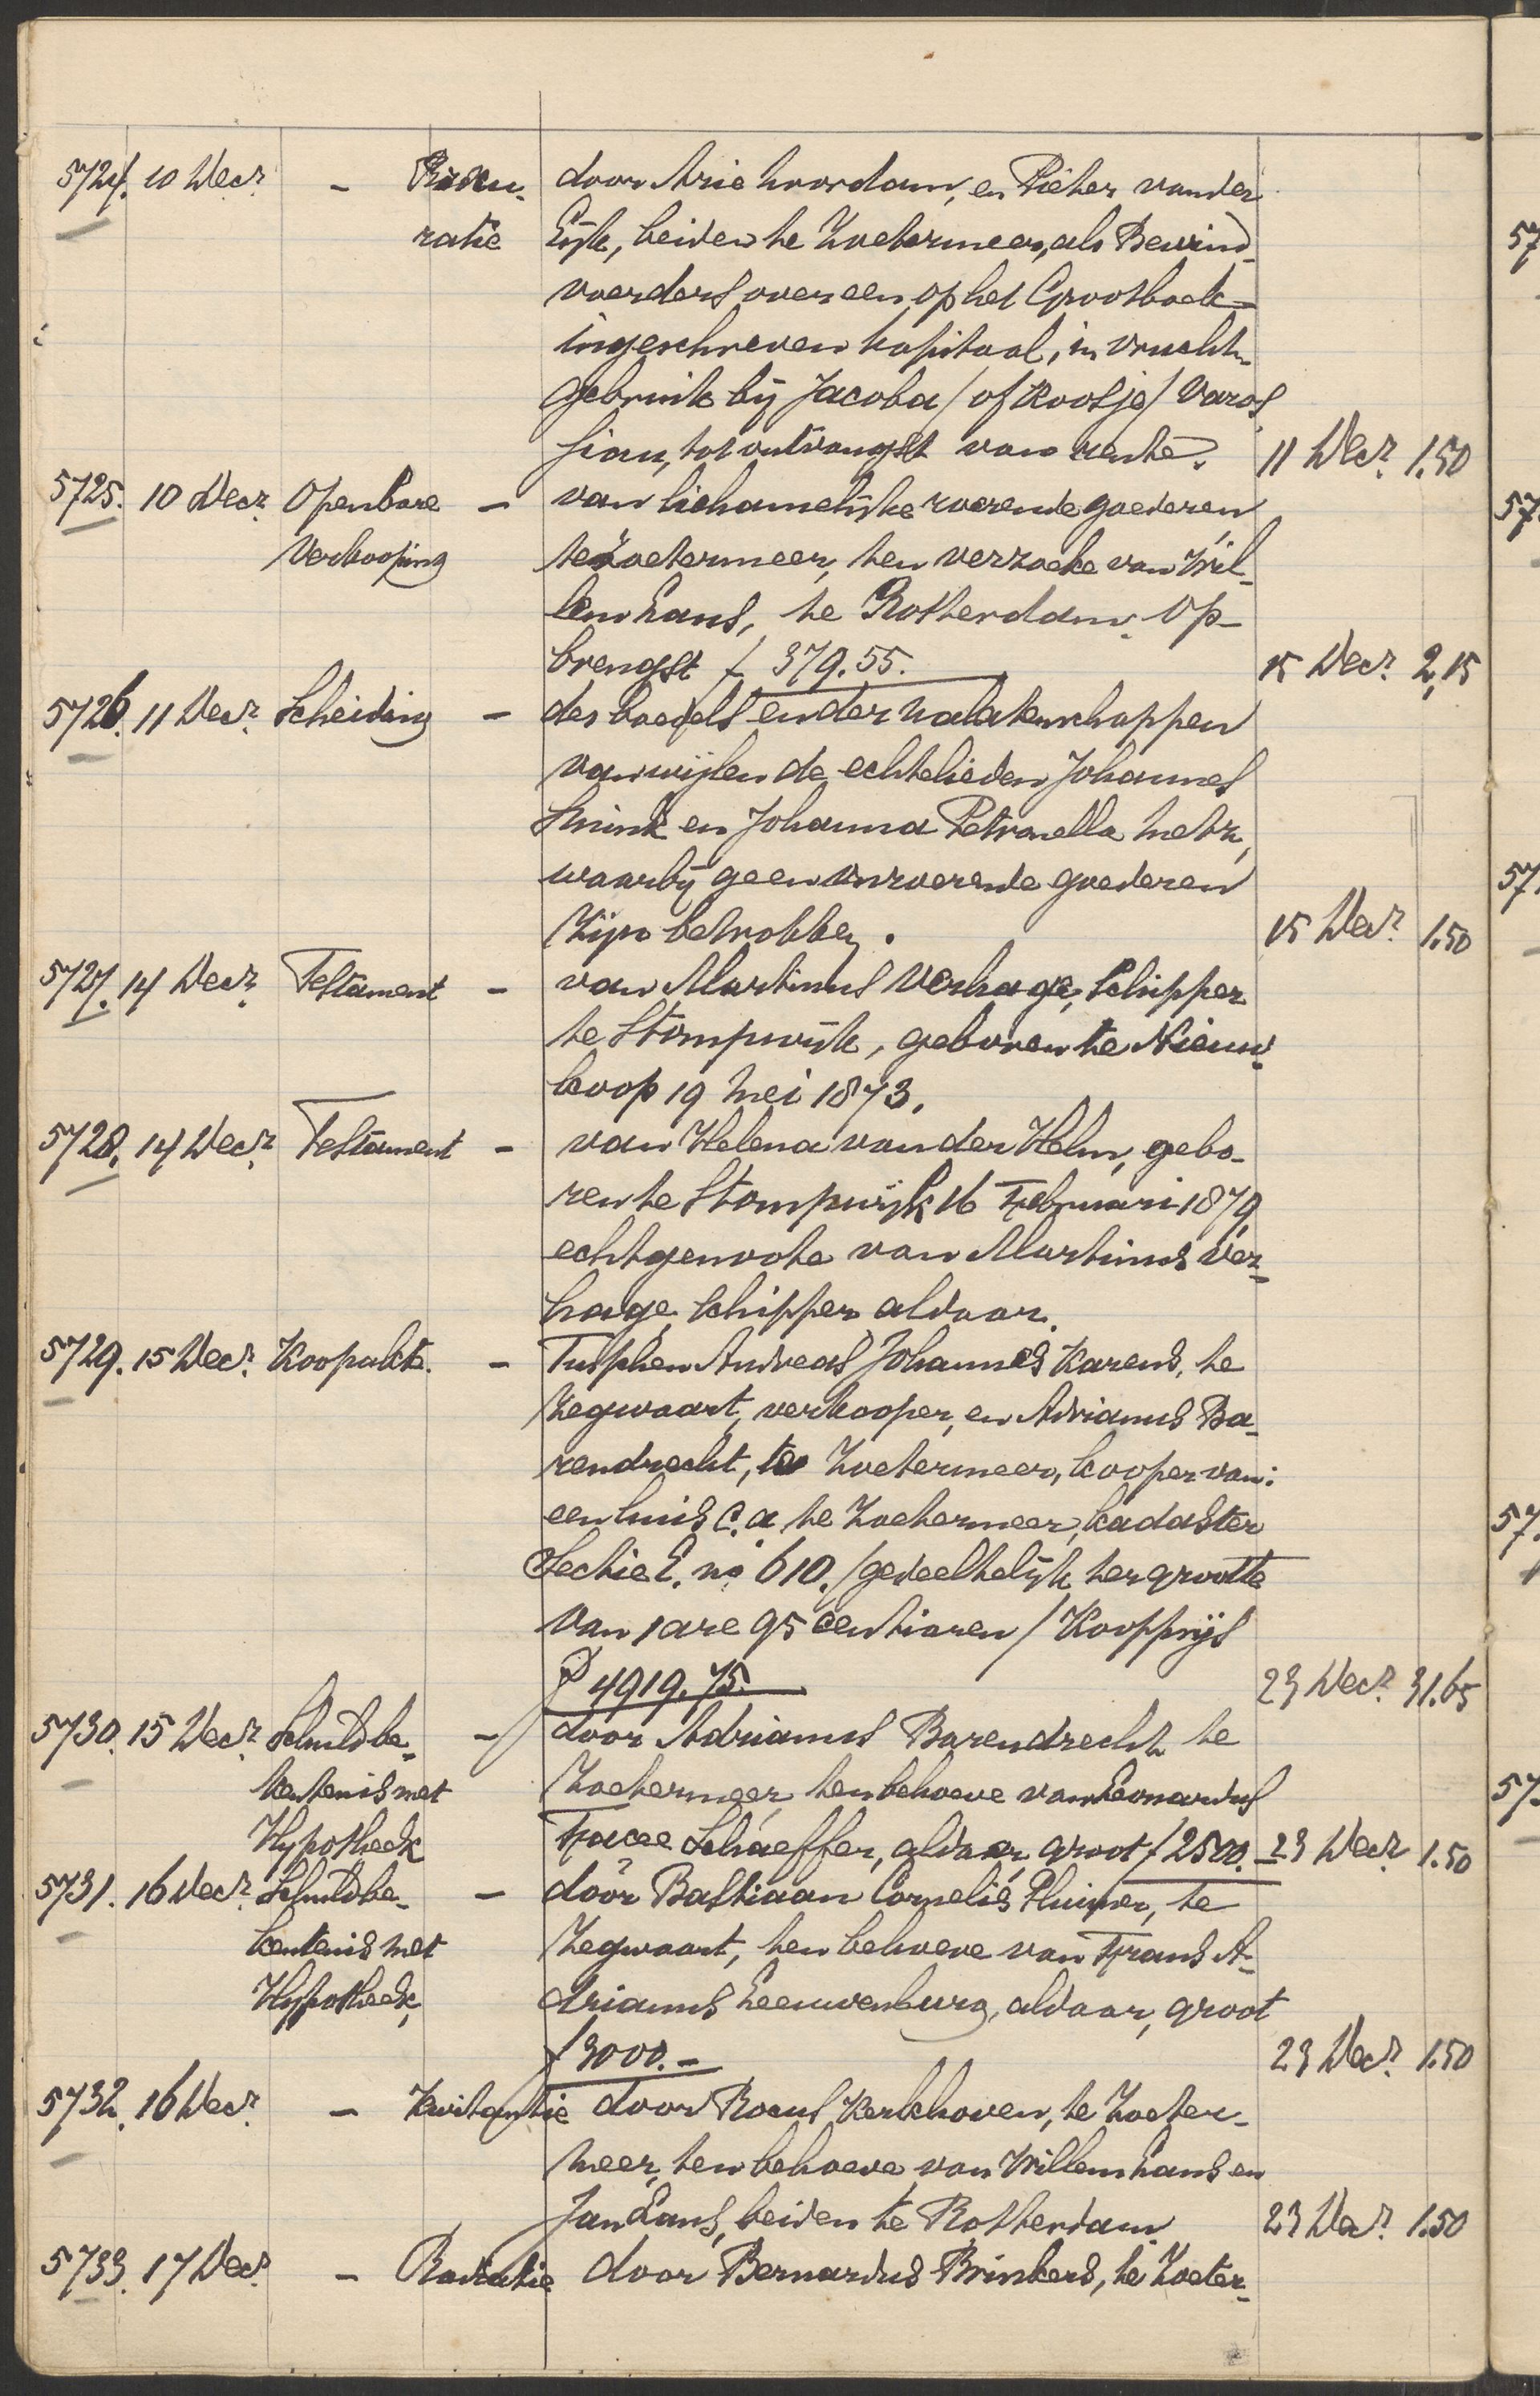 5724. 10 Decr. - Procu- door Arie Noordam, en Pieter van der
ratie Eijk, beiden te Zoetermeer, als Bewind-
voerders over een op het Grootboek
ingeschreven kapitaal, in vrucht-
gebruik bij Jacoba / of Koosje / Varos
sian, tot ontvangst van rente. 11 Decr. 1.50
5725. 10 Decr. Openbare - van lichamelijke roerende goederen
Verkooping te Zoetermeer, ten verzoeke van Wil-
lem Eans, te Rotterdam. Op-
brengst f 379.55. 15 Decr. 2,15
5726. 11 Decr. Scheiding - des boedels en der nalatenschappen
van wijlen de echtelieden Johannes
en Johanna Petronella
waarbij geen onroerende goederen
zijn betrokken. 15 Decr. 1.50
5727. 14 Decr. Testament - van Martinus Verhage, Schipper
te Stompwijk, geboren te Nieuw-
koop 19 Mei 1873.
5728. 14 Decr. Testament - van Helena van der Helm, gebo-
ren te Stompwijk 16 Februari 1879
echtgenoote van Martinus Ver-
hage, Schipper aldaar.
5729. 15 Decr. Koopakte. - Tusschen Andreas Johannes Karens, te
Zegwaart, verkooper, en Adrianus Ba-
rendrecht, te Zoetermeer, kooper van:
een huis c.a. te Zoetermeer, kadaster
Sectie E. no 610. / gedeeltelijk ter grootte
van 1 are 95 centiaren / Koopprijs
f 4919.75. 23 Decr. 31.65
5730. 15 Decr. Schuldbe- - door Adrianus Barendrecht te
kentenis met Zoetermeer, ten behoeve van Leonardus
Hypotheek Schaeffer, aldaar, groot f 2500.- 23 Decr. 1.50
5731. 16 Decr. Schuldbe- - door Bastiaan Cornelis Pluimer, te
kentenis met Zegwaart, ten behoeve van Frans A-
Hypotheek, drianus Leeuwenburg, aldaar, groot
f 3000.- 23 Decr. 1.50
5732. 16 Decr. - Kwitantie door Rocus Kerkhoven, te Zoeter-
meer, ten behoeve van Willem Eans en
Jan Eans, beiden te Rotterdam 23 Decr. 1.50
5733. 17 Decr. - Radiatie door Bernardus Brinkers, te Zoeter-